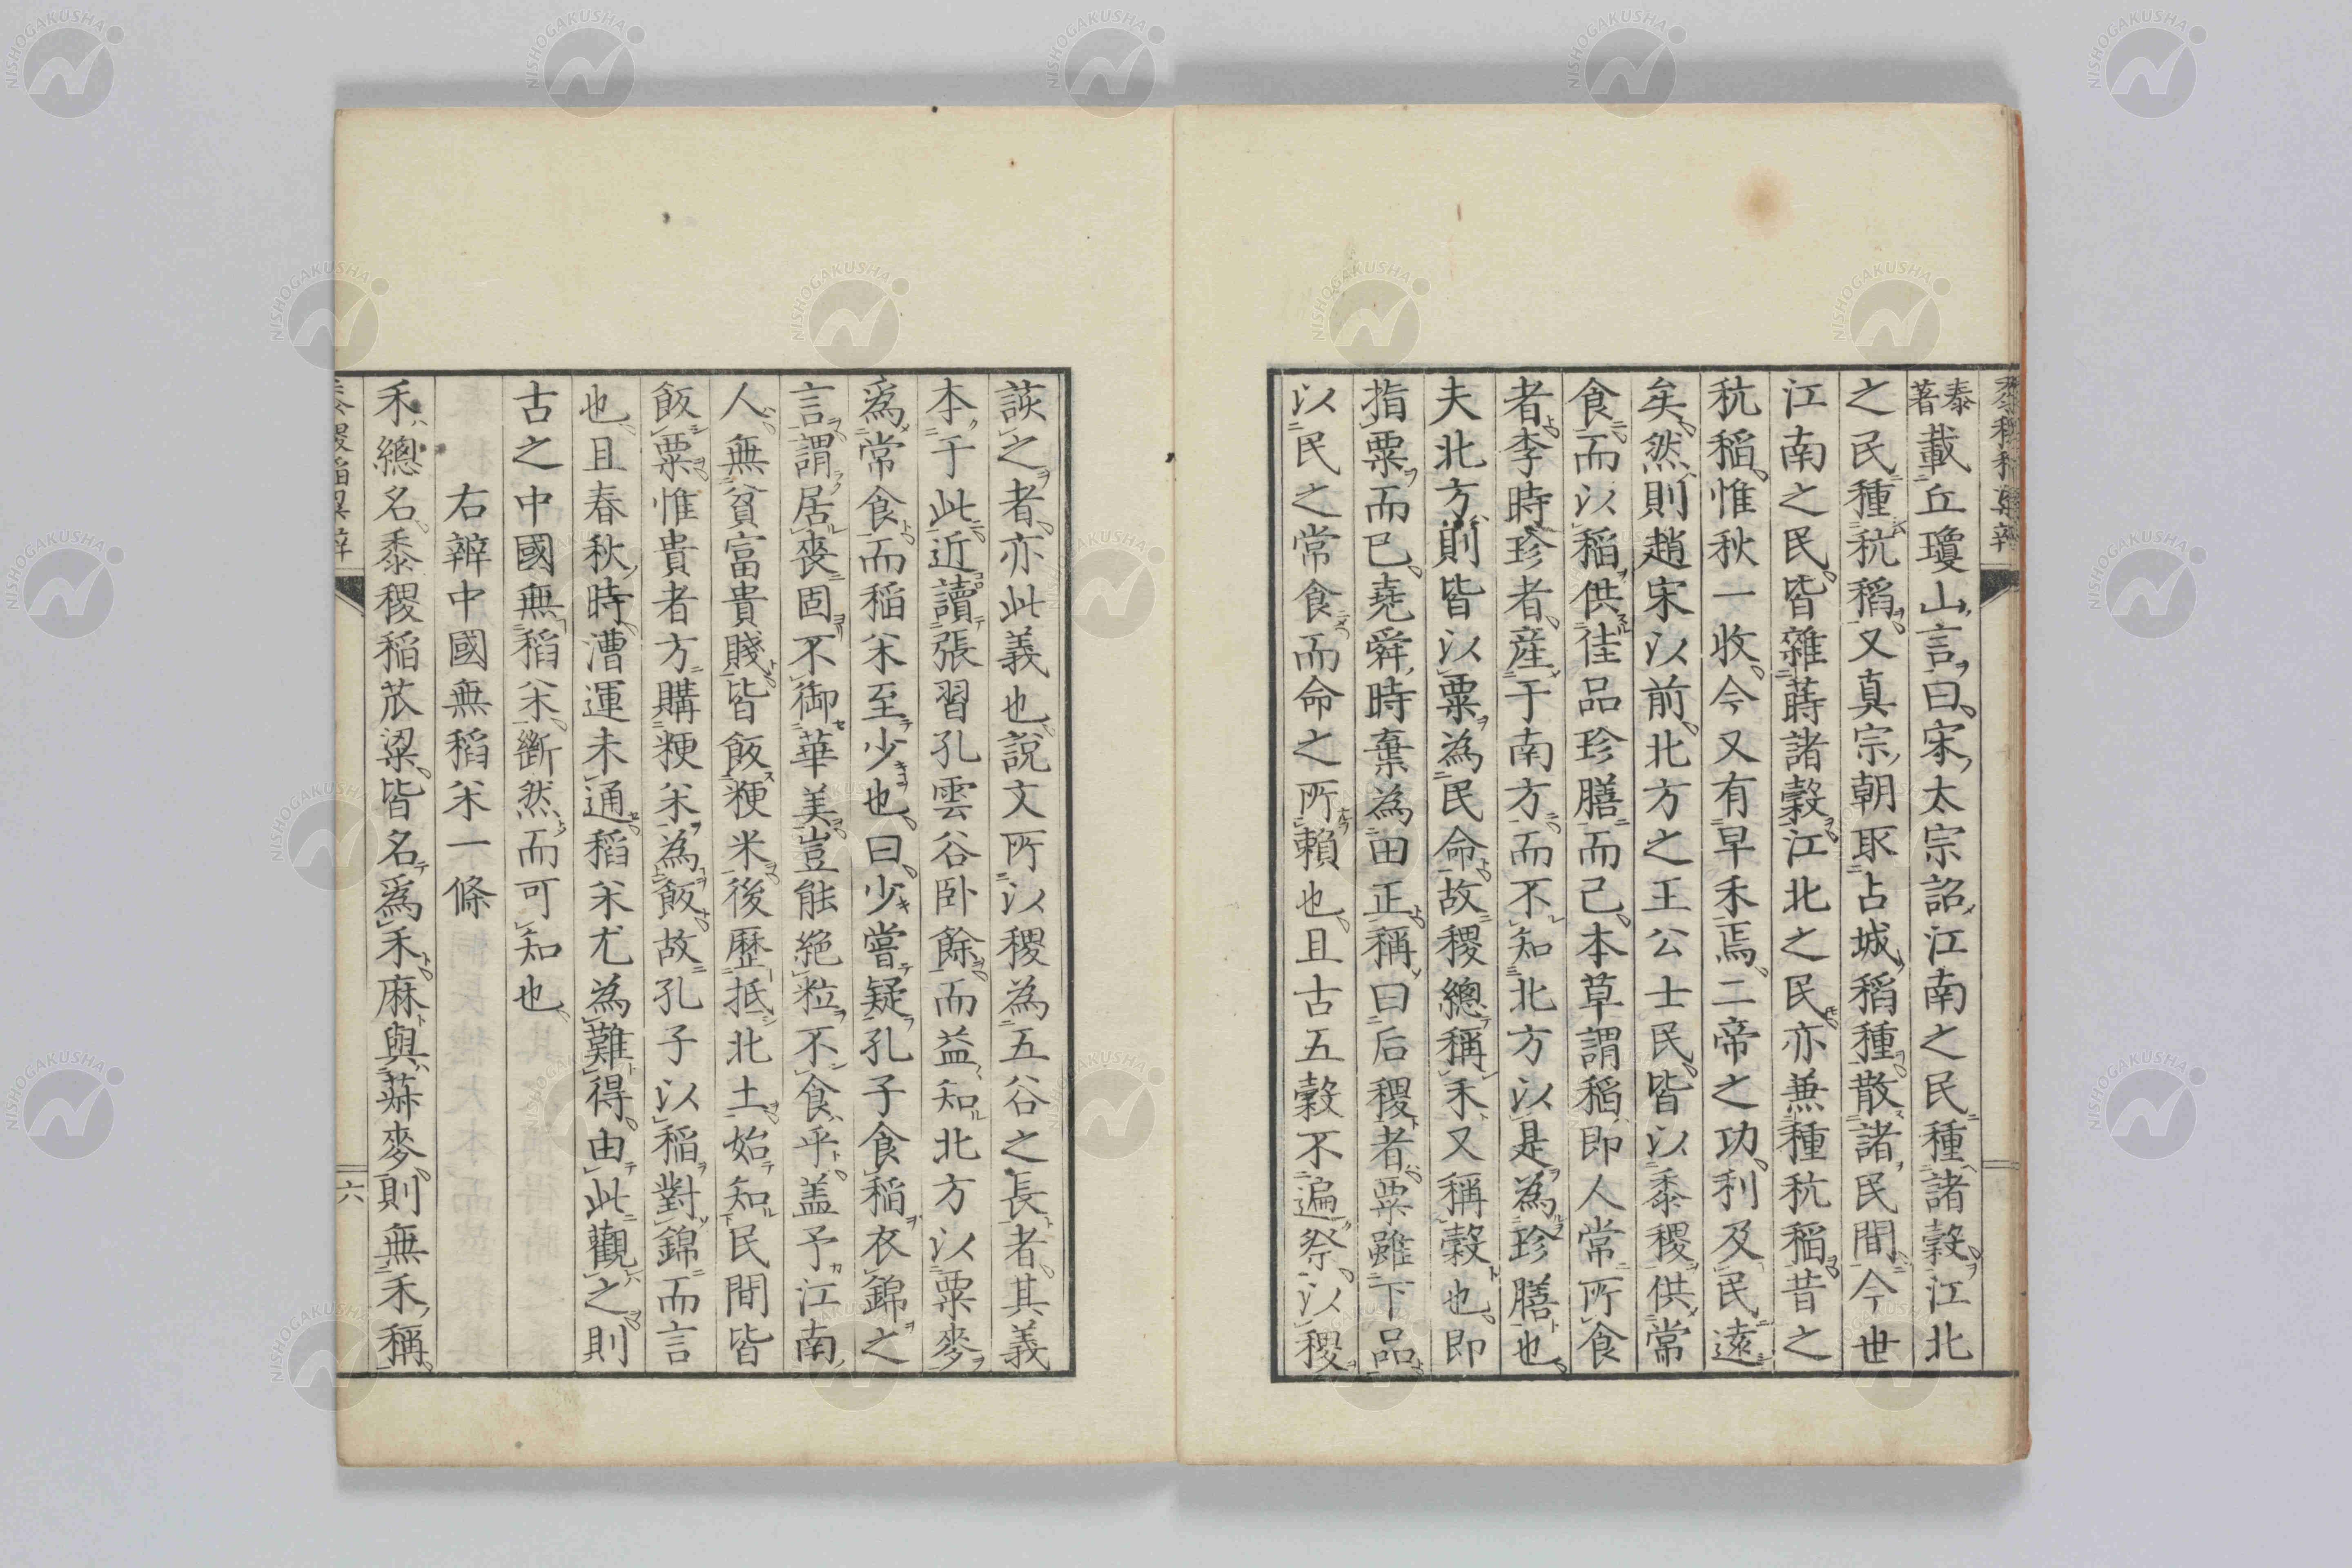 黍稷稲粱辨
泰著載丘瓊山言曰宋太宗詔江南之民種諸穀江北
之民種秔稲又真宗朝取占城稲種散諸民間今世
江南之民皆雜蒔諸穀江北之民亦兼種秔稲昔之
秔稲惟秋一收今又有早禾焉二帝之功利及民遠
矣然則趙宋以前北方之王公士民皆以黍稷供常
食而以稲供佳品珍膳而已本草謂稲即人常所食
者李時珍者産于南方而不知北方以是為珍膳也
夫北方則皆以粟為民命故稷總稱禾又稱穀也即
指粟而已堯舜時棄為田正稱曰后稷者粟雖下品
以民之常食而命之所賴也且古五穀不遍祭以稷
該之者亦此義也説文所以稷為五谷之長者其義
本于此近讀張習孔雲谷卧餘而益知北方以粟麥
為常食而稲米至少也曰少嘗疑孔子食稲衣錦之
言謂居喪固不御華美豈能絶粒不食乎盖予江南
人無貧富貴賤皆飯粳米後歴抵北土始知民間皆
飯粟惟貴者方購粳米為飯故孔子以稲對錦而言
也且春秋時漕運未通稲米尤為難得由此觀之則
古之中國無稲米斷然而可知也
右辨中國無稲米一條
禾總名黍稷稲苽粱皆名為禾麻與菽麥則無禾稱
黍稷稲粱辨
六
NISHOGAKUSHA